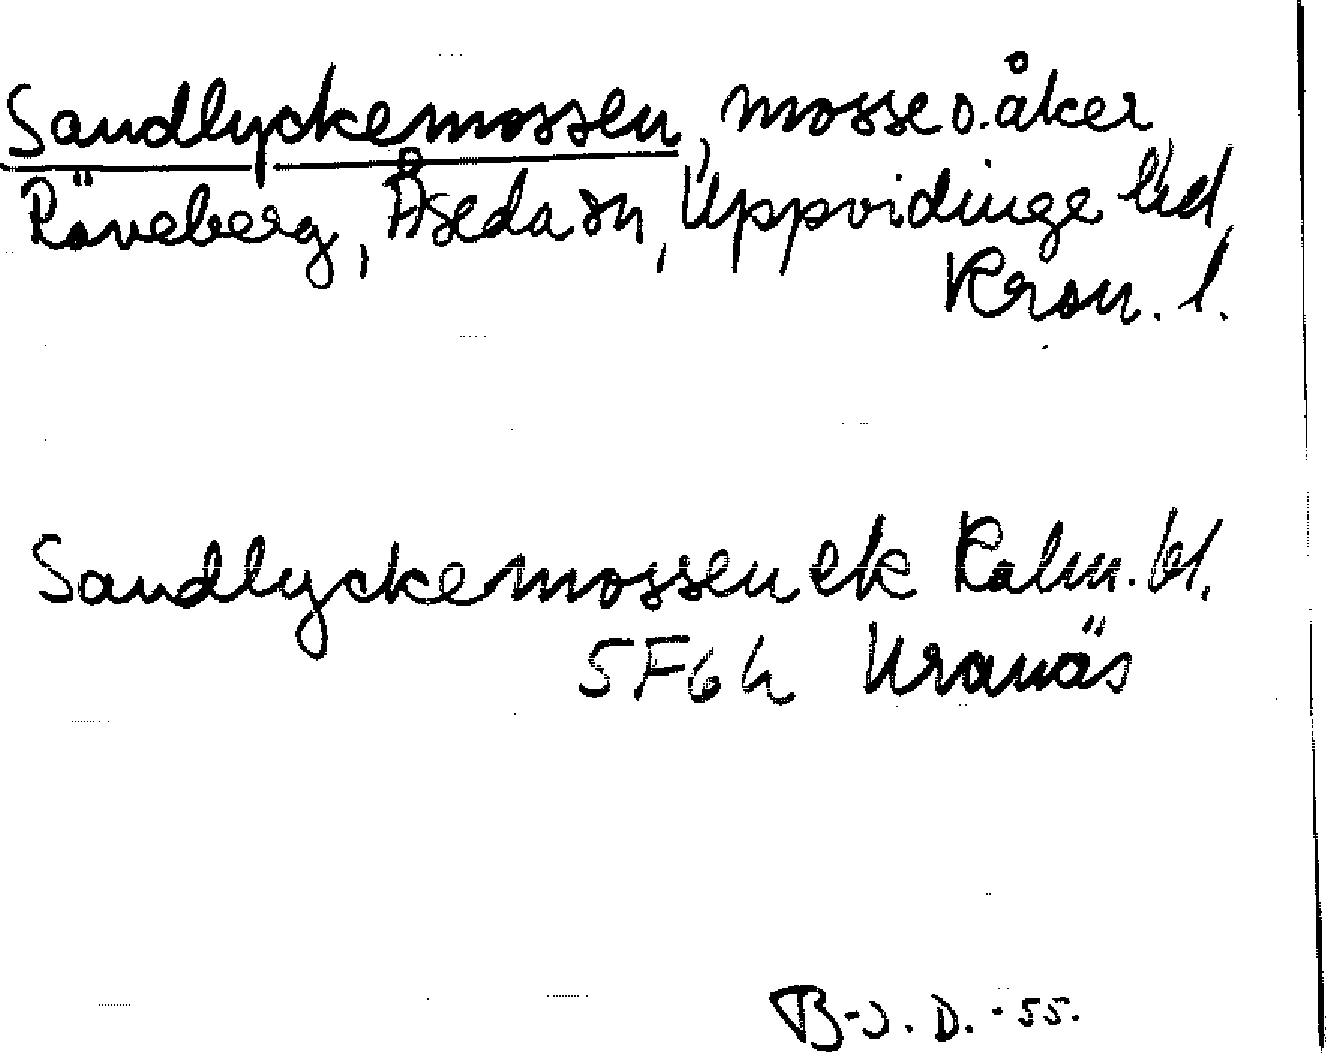 Sandlyckemossen, mosse o. åker,
Räveberg, Åseda sn, Uppvidinge hd,
Kron. l.
Sandlyckemossen ek Kalm. bl.
5F6h Kranäs
B-J. D. -55.